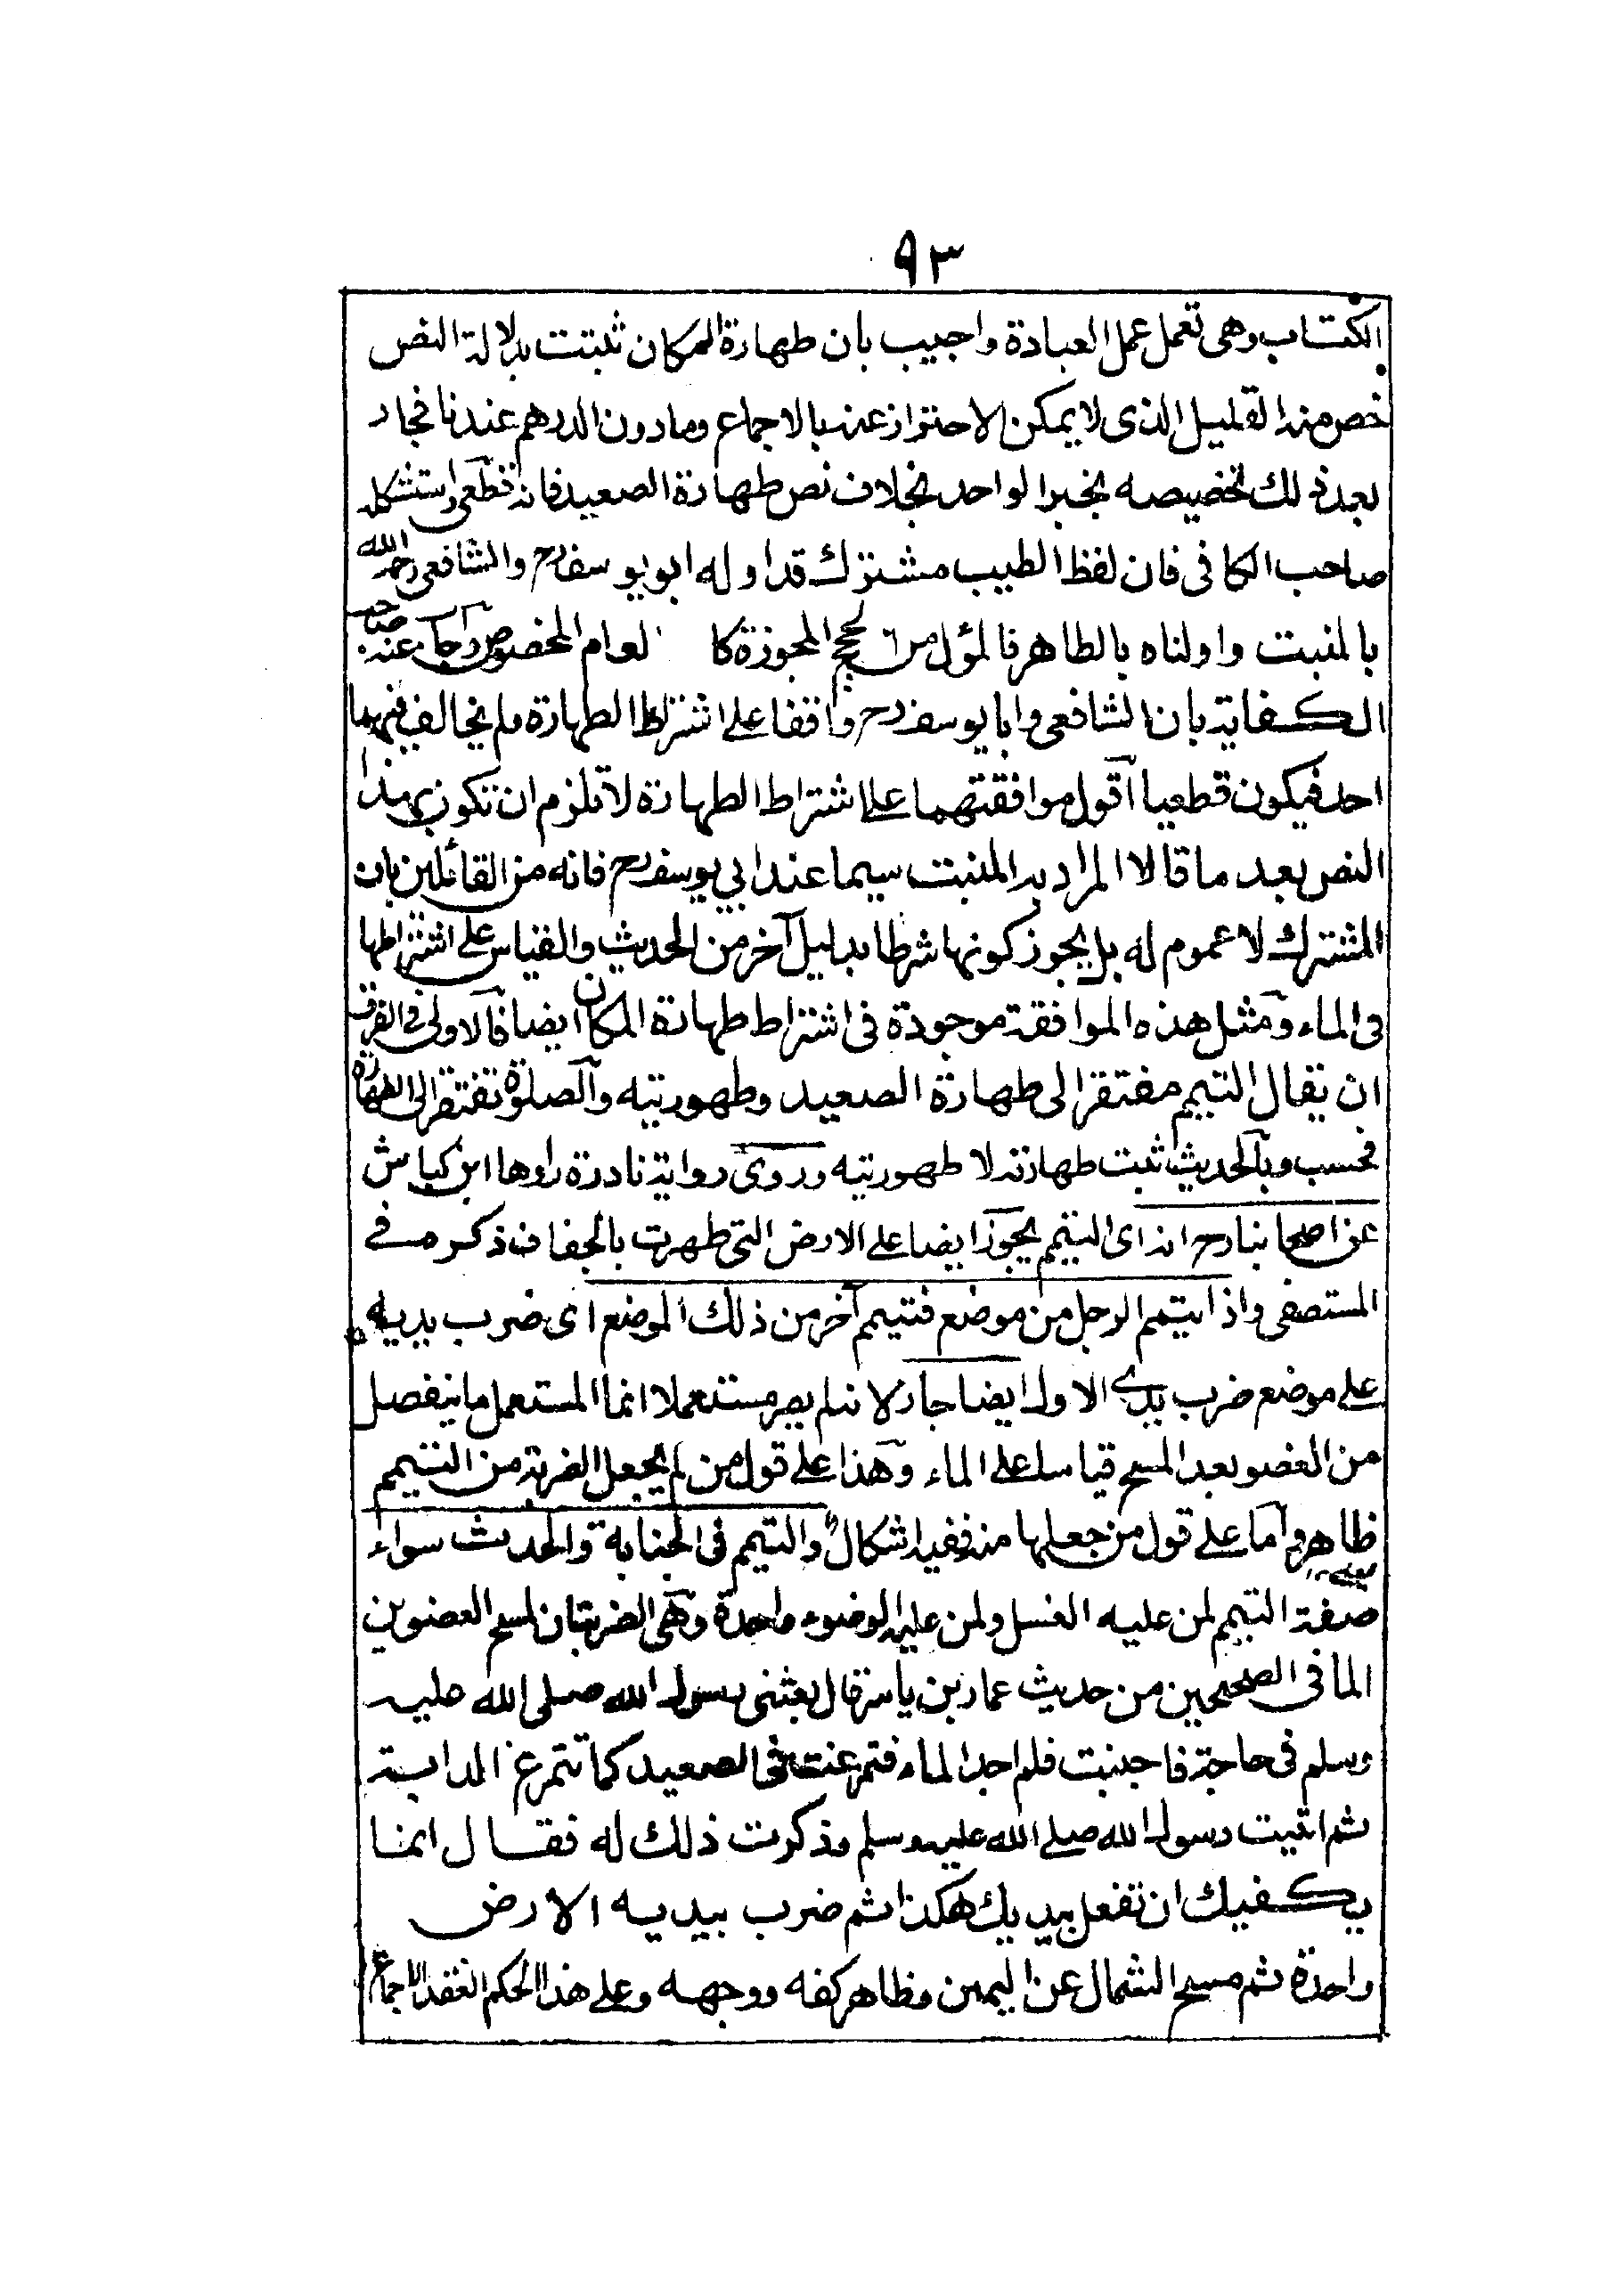 ٩٣
الكتاب وهى تعمل عمل العبادة واجيب بان طهارة المكان ثبتت بدلالة النص
خص منه القليل الذى لا يمكن الاحتراز عنه بالاجماع وما دون الدرهم عندنا فجاز
بعد ذلك تخصيصه بخبر الواحد بخلاف نص طهارة الصعيد فانه قطعى واستشكله
صاحب الكافى فان لفظ الطيب مشترك قد اوله ابو يوسف رح والشافعى رحمه الله
بالمنبت واولناه بالطاهر فالمؤل من الحجج المجوزة كا لعام المخصوص واجاب عنه صاحب
الكفاية بان الشافعى وابا يوسف رح وافقا على اشتراط الطهارة ولم يخالف فيهما
احد فيكون قطعيا اقول موافقتهما على اشتراط الطهارة لا تلزم ان تكون بهذا
النص بعد ما قالا المراد به المنبت سيما عند ابي يوسف رح فانه من القائلين بان
المشترك لا عموم له بل يجوز كونها شرطا بدليل آخر من الحديث والقياس على اشتراطها
فى الماء ومثل هذه الموافقة موجودة فى اشتراط طهارة المكان ايضا فالاولى فى الفرق
ان يقال التيمم مفتقر الى طهارة الصعيد وطهوريته والصلوة تفتقر الى الطهارة
فحسب وبالحديث ثبت طهارته لا طهوريته وروى رواية نادرة رواها ابن كاس
عن اصحابنا رح انه اى التيمم يجوز ايضا على الارض التى طهرت بالجفاف ذكره فى
المستصفى واذا تيمم الرجل من موضع فتيمم آخر من ذلك الموضع اى ضرب يديه
على موضع ضرب يدى الاول ايضا جاز لانه لم يصر مستعملا انما المستعمل ما ينفصل
من العضو بعد المسح قياسا على الماء وهذا على قول من لم يجعل الضربة من التيمم
ظاهر واما على قول من جعلها منه ففيه اشكال والتيمم فى الجنابة والحدث سواء
يعنى
صفة التيمم لمن عليه الغسل ولمن عليه الوضوء واحدة وهى الضربتان لمسح العضوين
لما فى الصحيحين من حديث عمار بن ياسر قال بعثنى رسول الله صلى الله عليه
وسلم فى حاجة فاجنبت فلم اجد الماء فتمرغت فى الصعيد كما تتمرغ الدابة
ثم اتيت رسول الله صلى الله عليه وسلم وذكرت ذلك له فقال انما
يكفيك ان تفعل بيديك هكذا ثم ضرب بيديه الارض
واحدة ثم مسح الشمال عن اليمين وظاهر كفه ووجهه وعلى هذا الحكم انعقد الاجماع